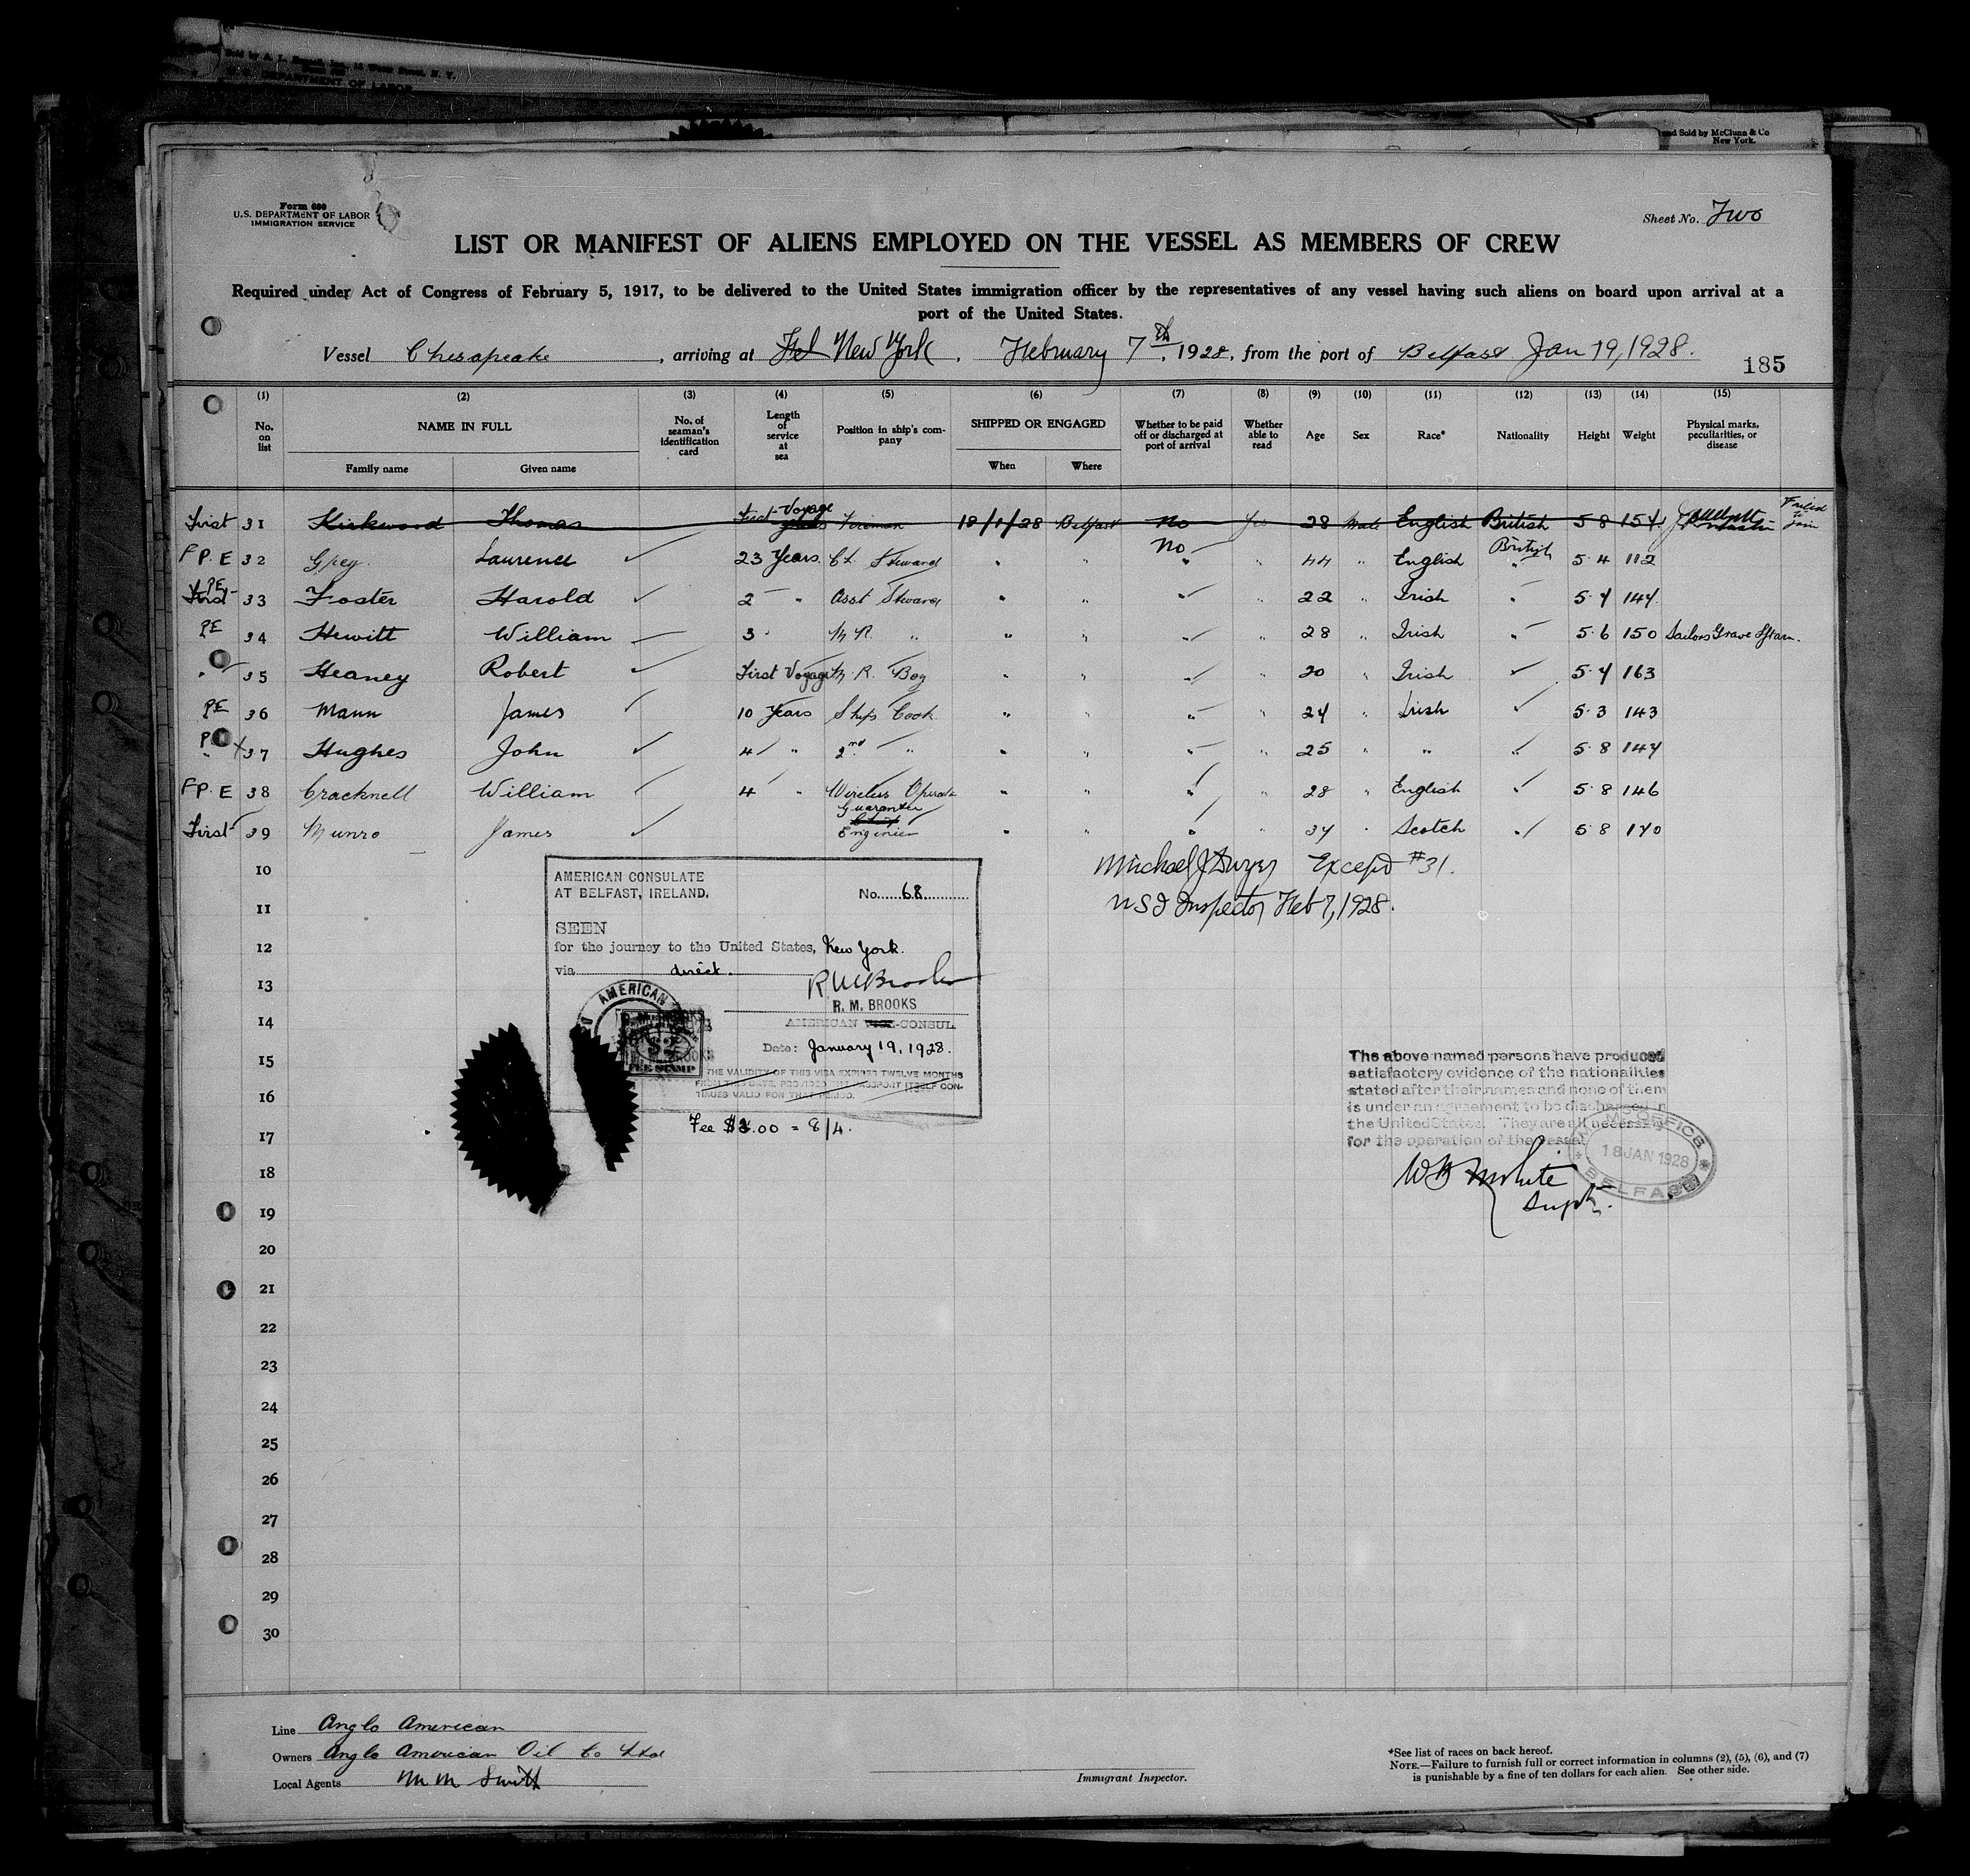 Sold by A. L.
DEPARTMENT OF LABOR
and Sold by McClunn & Co
New York.
Form 680
U.S. DEPARTMENT OF LABOR
IMMIGRATION SERVICE
Sheet No. Two
LIST OR MANIFEST OF ALIENS EMPLOYED ON THE VESSEL AS MEMBERS OF CREW
Required under Act of Congress of February 5, 1917, to be delivered to the United States immigration officer by the representatives of any vessel having such aliens on board upon arrival at a
port of the United States.
Vessel Chesapeake, arriving at New York, February 7th, 1928, from the port of Belfast Jan 19, 1928.
185
(1) (2) (3) (4) (5) (6) (7) (8) (9) (10) (11) (12) (13) (14) (15)
No. on list NAME IN FULL Family name Given name No. of seaman's identification card Length of service at sea Position in ship's company SHIPPED OR ENGAGED When Where Whether to be paid off or discharged at port of arrival Whether able to read Age Sex Race* Nationality Height Weight Physical marks, peculiarities, or disease
First 31 Kirkwood Thomas First Voyage Fireman 18/1/28 Belfast No Yes 28 Male English British 5 8 154 Failed to join
F P. E 32 Grey. Laurence 23 Years. Ch. Steward " " No " " 44 " English British " 5 4 112
First P.E 33 Foster Harold 2 " Asst Steward " " " " 22 " Irish " 5 4 144
PE 34 Hewitt William 3 " M R. " " " " " 28 " Irish " 5 6 150 Sailors Grave L/farm.
" 35 Heaney Robert First Voyage M. R. Boy " " " " 20 " Irish " 5 4 163
PE 36 Mann James 10 Years Ships Cook " " " " 24 " Irish " 5 3 143
PE " X 37 Hughes John 4 " 2nd " " " " " 25 " " " 5 8 144
F P. E 38 Cracknell William 4 " Wireless Operator " " " " 28 " English " 5 8 146
First 39 Munro James Guarantee Engineer " " " " 34 " Scotch " 5 8 140
Michael J Dwyer Except #31.
U S I Inspector Feb 7, 1928.
10
11
12
13
14
15
16
17
18
19
20
21
22
23
24
25
26
27
28
29
30
AMERICAN CONSULATE
AT BELFAST, IRELAND.
No. 68
SEEN
for the journey to the United States, New York.
via direct.
R M Brooks
R. M. BROOKS
AMERICAN VICE-CONSUL
Date: January 19, 1928.
THE VALIDITY OF THIS VISA EXPIRES TWELVE MONTHS
FROM THIS DATE, PROVIDED THE PASSPORT ITSELF CON-
TINUES VALID FOR THAT PERIOD.
AMERICAN
$2
FEE STAMP
Fee $2.00 = 8/4.
The above named persons have produced
satisfactory evidence of the nationalities
stated after their names and none of them
is under an agreement to be discharged in
the United States. They are all necessary
for the operation of the vessel
M.M. OFFICE
18 JAN 1928
BELFAST
Supt.
Line Anglo American
Owners Anglo American Oil Co Ltd
Local Agents M M Swift
Immigrant Inspector.
*See list of races on back hereof.
NOTE.—Failure to furnish full or correct information in columns (2), (5), (6), and (7)
is punishable by a fine of ten dollars for each alien. See other side.